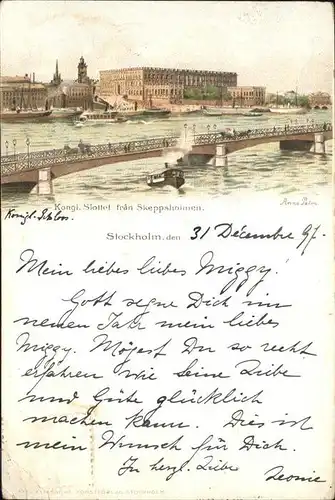 Kongl. Slottet från Skeppsholmen.
Königl. Schloss.
Anna Palm
Stockholm, den 31 Décembre 97.
Mein liebes liebes Miggy!
Gott segne Dich im
neuen Jahr mein liebes
Miggy. Mögest Du so recht
erfahren wie seine Liebe
und Güte glücklich
machen kann. Dies ist
mein Wunsch für Dich.
In herzl. Liebe
Leonie